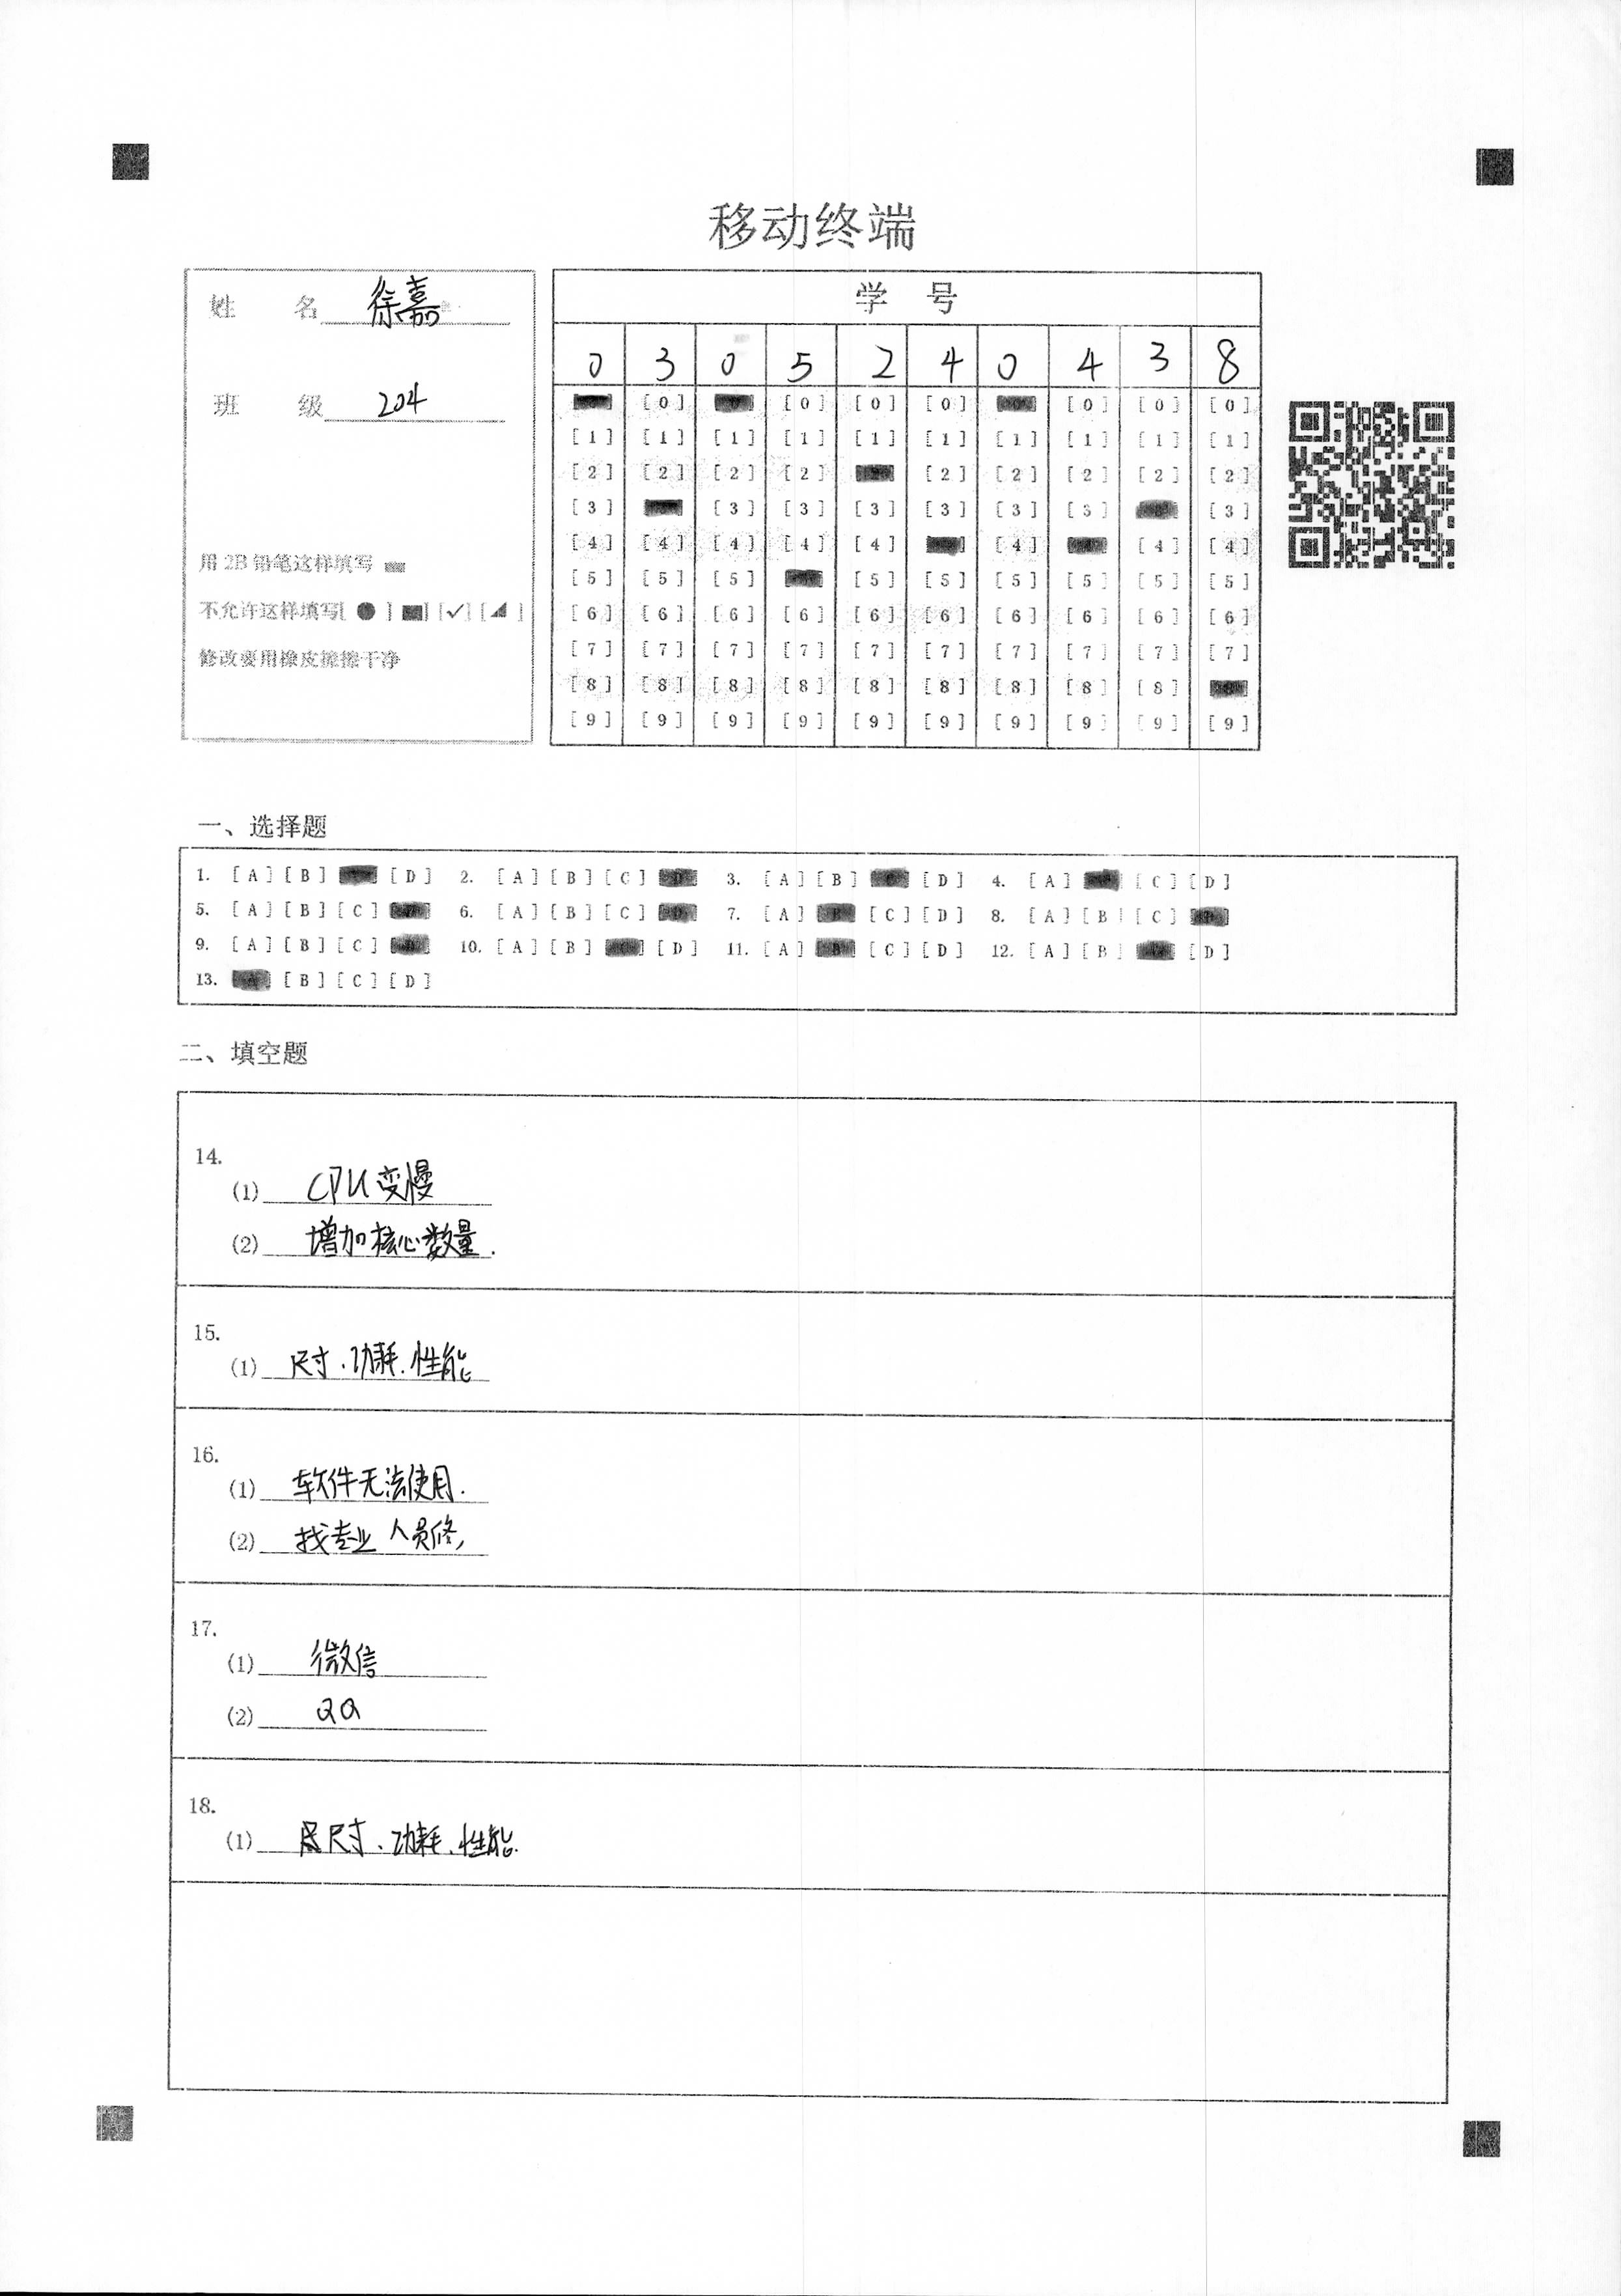 移动终端
姓 名 徐嘉
班 级 204
用 2B 铅笔这样填写
不允许这样填写[ ● ] [■] [✓] [◢ ]
修改要用橡皮擦擦干净
学 号
0 3 0 5 2 4 0 4 3 8
[0] [0] [0] [0] [0] [0] [0]
[1] [1] [1] [1] [1] [1] [1] [1] [1] [1]
[2] [2] [2] [2] [2] [2] [2] [2] [2]
[3] [3] [3] [3] [3] [3] [3] [3]
[4] [4] [4] [4] [4] [4] [4] [4]
[5] [5] [5] [5] [5] [5] [5] [5] [5]
[6] [6] [6] [6] [6] [6] [6] [6] [6] [6]
[7] [7] [7] [7] [7] [7] [7] [7] [7] [7]
[8] [8] [8] [8] [8] [8] [8] [8] [8]
[9] [9] [9] [9] [9] [9] [9] [9] [9] [9]
一、选择题
1. [A] [B] [D] 2. [A] [B] [C] 3. [A] [B] [D] 4. [A] [C] [D]
5. [A] [B] [C] 6. [A] [B] [C] 7. [A] [C] [D] 8. [A] [B] [C]
9. [A] [B] [C] 10. [A] [B] [D] 11. [A] [C] [D] 12. [A] [B] [D]
13. [B] [C] [D]
二、填空题
14.
(1) CPU变慢
(2) 增加核心数量.
15.
(1) 尺寸.功耗.性能
16.
(1) 软件无法使用.
(2) 找专业人员修,
17.
(1) 微信
(2) QQ
18.
(1) 尺寸.功耗.性能.